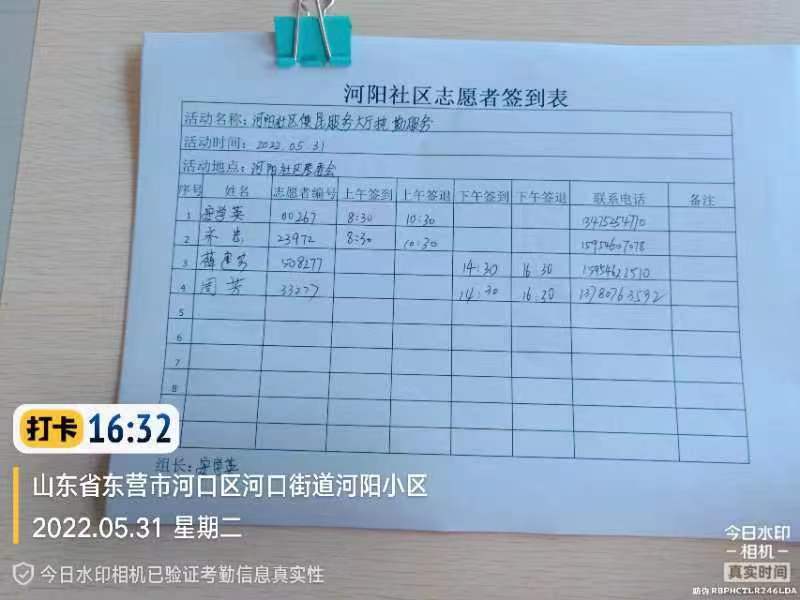 河阳社区志愿者签到表
活动名称：河阳社区便民服务大厅执勤服务
活动时间：2022.05.31
活动地点：河阳社区居委会
序号 姓名 志愿者编号 上午签到 上午签退 下午签到 下午签退 联系电话 备注
1 00267 8:30 10:30 13475254770
2 23972 8:30 10:30 15954607078
3 508277 14:30 16:30 15954621510
4 周芳 33277 14:30 16:30 13780763592
5
6
7
8
组长：
打卡 16:32
山东省东营市河口区河口街道河阳小区
2022.05.31 星期二
今日水印相机已验证考勤信息真实性
今日水印
相机
真实时间
防伪 RBPHCTLR246LDA